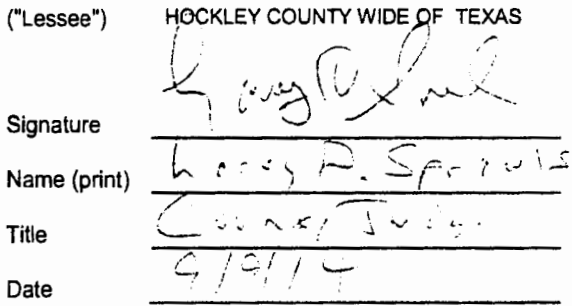 ("Lessee") HOCKLEY COUNTY WIDE OF TEXAS
Signature
Name (print) Larry D. Sprowls
Title County Judge
Date 9/9/14